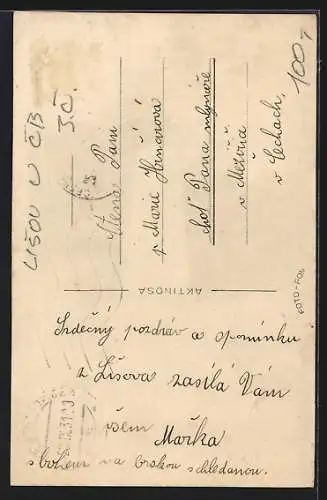 LIŠOV U ČB
J.Č.
100,-
Ctěná Paní
p. Marie Hrnčárova
choť Pana mlynáře
v Meziříčí
v Čechách,
AKTINOSA
FOTO-FON
Srdečný pozdráv a spomínku
z Lišova zasílá Vám
všem Mařka
s bohem na brskou schledanou.